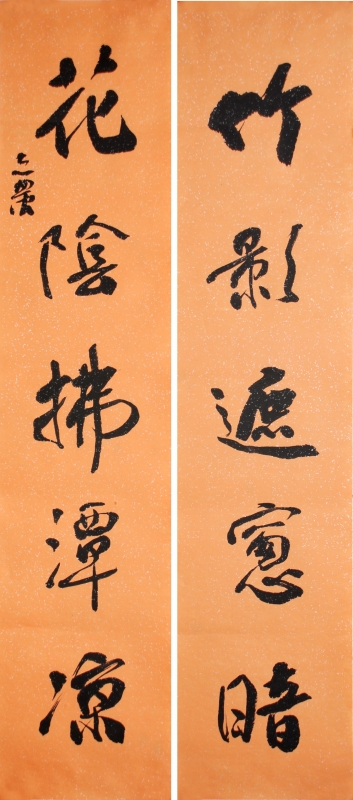 竹影遮窓暗
花陰拂潭凉